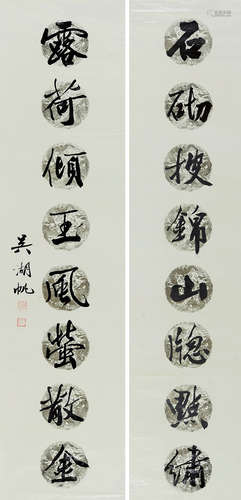 石砌搜錦山牕點繡
露荷傾玉風螢散金
吳湖帆